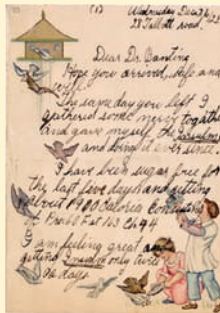 (1) Wednesday Dec
28 Tallott road.
Dear Dr. Banting
Hope you arrived safe and
well.
The same day you left I
gathered some nerve together
and gave myself the
and doing it ever since.
I have been sugar free for
the last five days and getting
about 1900 Calories
of Pro 60 Fat 163 Ch 94
I am feeling great and
getting only twice
a day.